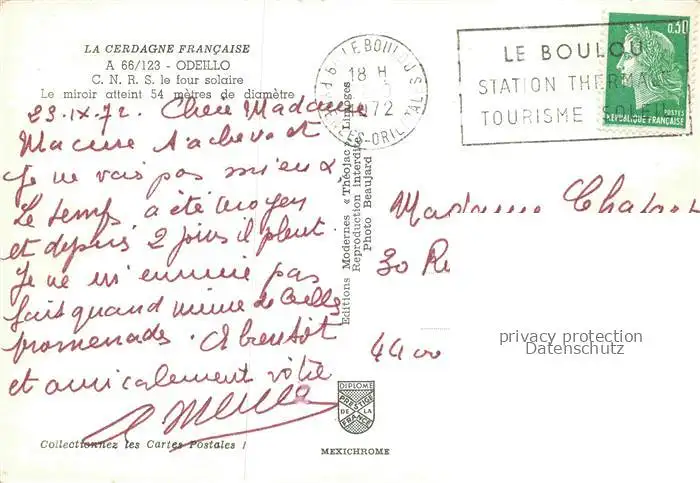 LA CERDAGNE FRANÇAISE
A 66/123 - ODEILLO
C. N. R. S. le four solaire
Le miroir atteint 54 mètres de diamètre
23.IX.72. Chère Madame
Ma cure s'achève et
Je ne vais pas mieux
Le temps a été moyen
et depuis 2 jours il pleut
Je ne m'ennuie pas
fait quand même de belles
promenades. A bientôt
et amicalement vôtre
Collectionnez les Cartes Postales !
Editions Modernes « Théojac », Limoges
Reproduction interdite
Photo Beaujard
LE BOULOU
18 H
1972
PYRÉNÉES-ORIENTALES
LE BOULOU
STATION THERMALE
TOURISME SOLEIL
0,30
POSTES
RÉPUBLIQUE FRANÇAISE
Madame
30
44 00
privacy protection
Datenschutz
DIPLOME
PRESTIGE
DE LA
FRANCE
MEXICHROME